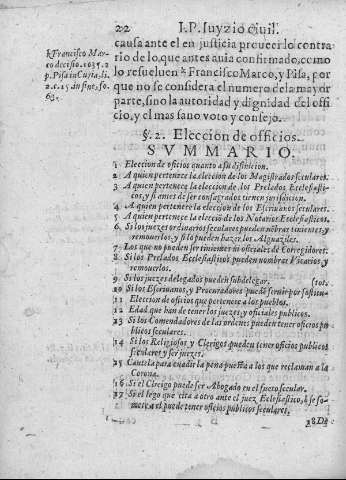 22 I.P. Iuyzio ciuil.
causa ante el en justicia proueerlo contra
rio de lo, que antes auia confirmado, como
lo resueluen k Francisco Marco, y Pisa, por
que no se considera el numero de la mayor
parte, sino la autoridad y dignidad del offi
cio, y el mas sano voto y consejo.
k Francisco Mar-
co decisio. 1035. 2
p. Pisa in Curia, li.
2. c. 15 in fine, fo.
63.
§. 2. Eleccion de officios.
SVMMARIO.
1 Eleccion de oficios quanto a su difinicion.
2 A quien pertenece la eleccion de los Magistrados seculares.
3 A quien pertenece la eleccion de los Prelados Ecclesiasti-
cos, y si antes de ser consagrados tienen jurisdicion.
4 A quien pertenece la eleccion de los Escriuanos seculares.
5 A quien pertenece la elecciõ de los Notarios Ecclesiasticos.
6 Si los juezes ordinarios seculares pueden nõbrar tinientes, y
remouerlos, y si lo pueden hazer los Alguaziles.
7 Los que no pueden ser tinientes ni oficiales de Corregidores.
8 Si los Prelados Ecclesiasticos pueden nombrar Vicarios, y
remouerlos.
9 Si los juezes delegados pueden subdelegar. [tos.
10 Si los Escriuanos, y Procuradores puedē seruir por sostitu-
11 Eleccion de oficios que pertenece a los pueblos.
12 Edad que han de tener los juezes, y oficiales publicos.
13 Si los Comendadores de las ordenes pueden tener oficios pu
blicos seculares.
14 Si los Religiosos, y Clerigos pueden tener oficios publicos
seculares y ser juezes.
15 Cautela para euadir la pena puesta a los que reclaman a la
Corona.
16 Si el Clerigo puede ser Abogado en el fuero secular.
17 Si el lego que cita a otro ante el juez Eclesiastico, ò se so-
mete a el puede tener oficios publicos seculares.
18 De